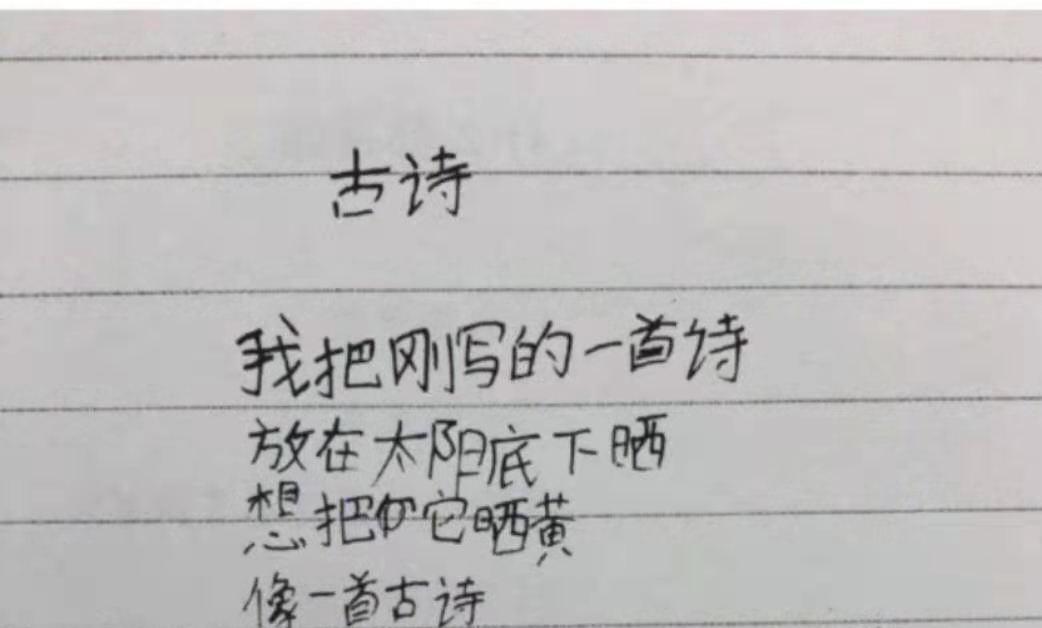 古诗
我把刚写的一首诗
放在太阳底下晒
想把它晒黄
像一首古诗